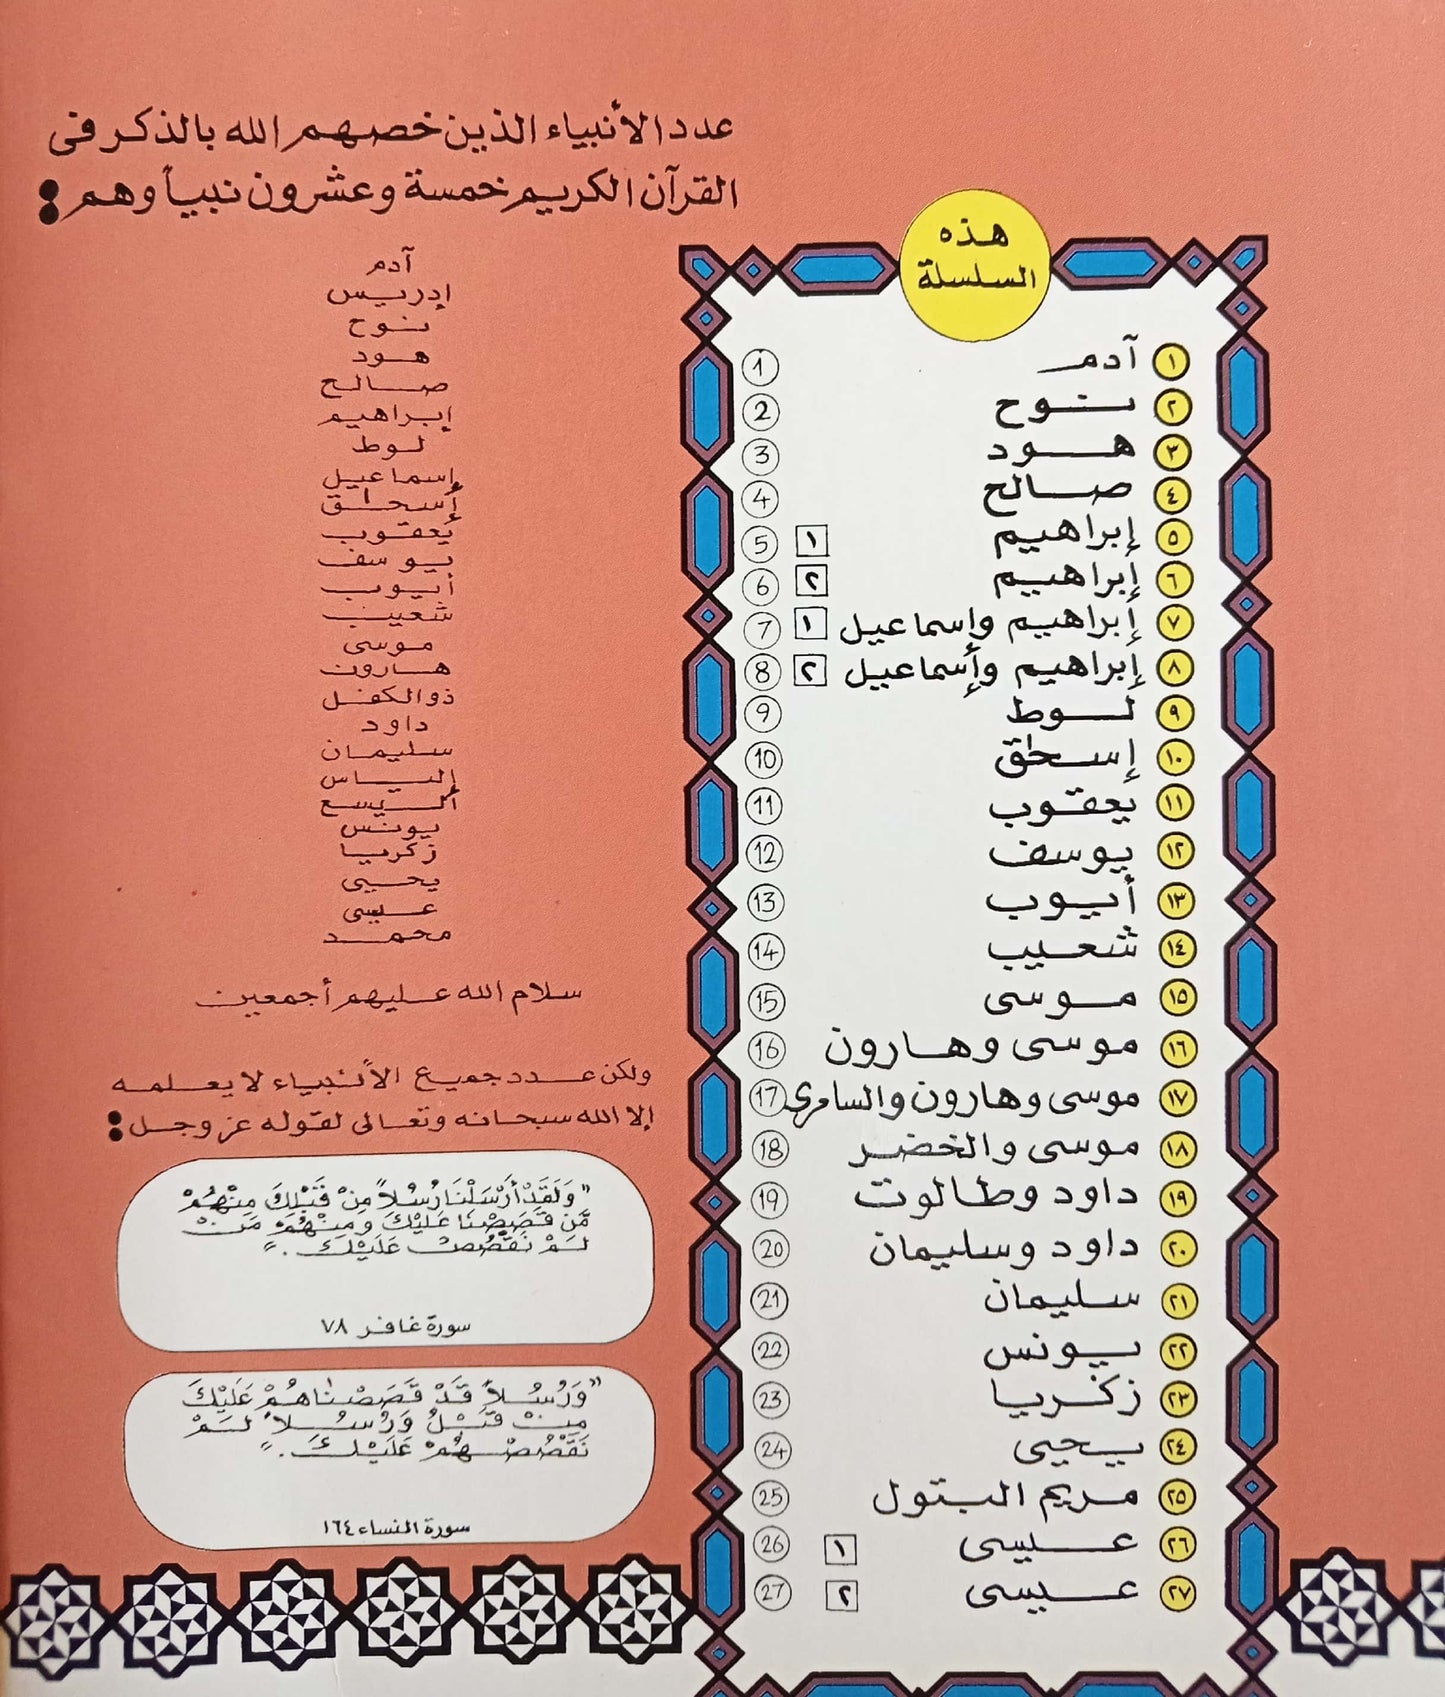 عدد الأنبياء الذين خصهم الله بالذكر فى
القرآن الكريم خمسة وعشرون نبياً وهم :
آدم
إدريس
نوح
هود
صالح
إبراهيم
لوط
إسماعيل
أسحاق
يعقوب
يوسف
أيوب
شعيب
موسى
هارون
ذوالكفل
داود
سليمان
إلياس
أليسع
يونس
زكريا
يحيى
عيسى
محمد
سلام الله عليهم أجمعين
ولكن عدد جميع الأنبياء لا يعلمه
إلا الله سبحانه وتعالى لقوله عز وجل :
"وَلَقَدْ أَرْسَلْنَا رُسُلاً مِنْ قَبْلِكَ مِنْهُمْ
مَّن قَصَصْنَا عَلَيْكَ وَمِنْهُمْ مَنْ
لَمْ نَقْصُصْ عَلَيْكَ ."
سورة غافر ٧٨
"وَرُسُلاً قَدْ قَصَصْنَاهُمْ عَلَيْكَ
مِنْ قَبْلُ وَرُسُلاً لَمْ
نَقْصُصْهُمْ عَلَيْكَ ."
سورة النساء ١٦٤
هذه
السلسلة
١ آدم 1
٢ نوح 2
٣ هود 3
٤ صالح 4
٥ إبراهيم ١ 5
٦ إبراهيم ٢ 6
٧ إبراهيم وإسماعيل ١ 7
٨ إبراهيم وأسماعيل ٢ 8
٩ لوط 9
١٠ إسحاق 10
١١ يعقوب 11
١٢ يوسف 12
١٣ أيوب 13
١٤ شعيب 14
١٥ موسى 15
١٦ موسى وهارون 16
١٧ موسى وهارون والسامرى 17
١٨ موسى والخضر 18
١٩ داود وطالوت 19
٢٠ داود وسليمان 20
٢١ سليمان 21
٢٢ يونس 22
٢٣ زكريا 23
٢٤ يحيى 24
٢٥ مريم البتول 25
٢٦ عيسى ١ 26
٢٧ عيسى ٢ 27